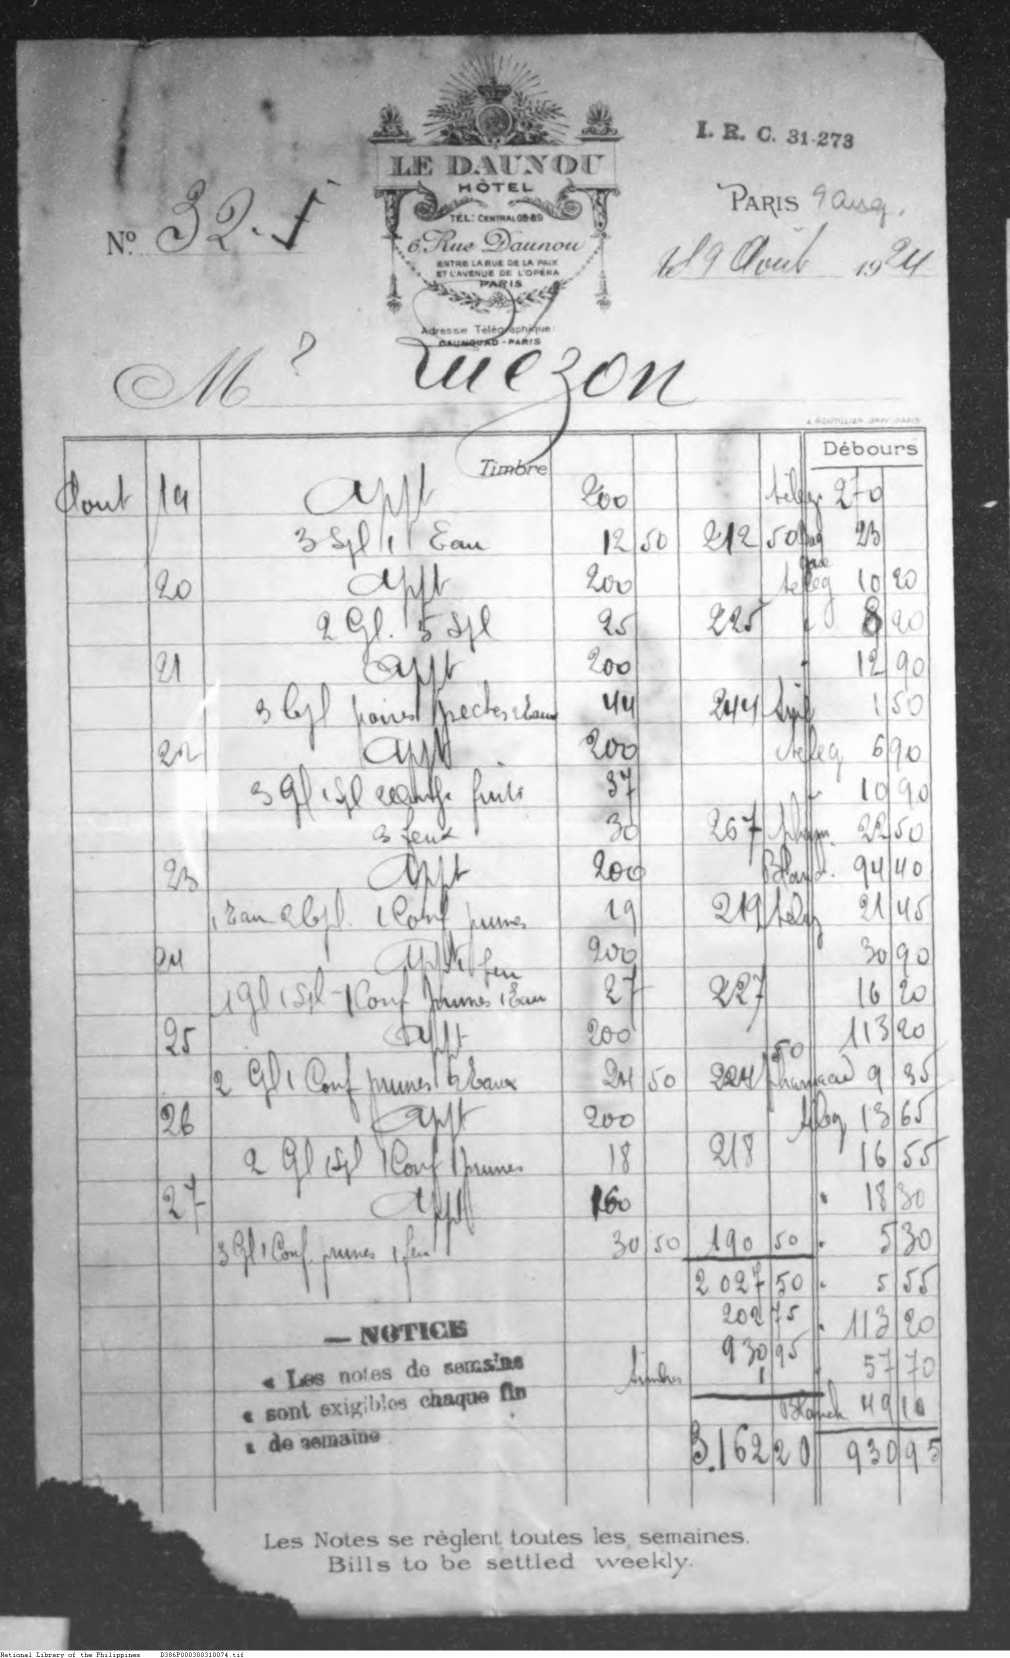 I. R. C. 31-273
LE DAUNOU
HÔTEL
TÉL: CENTRAL 09-89
6, Rue Daunou
ENTRE LA RUE DE LA PAIX
ET L'AVENUE DE L'OPÉRA
PARIS
Adresse Télégraphique:
DAUNOUAD-PARIS
No 32.
PARIS 9 Aug.
19 Août 1924
Mr Quezon
Timbre Débours
Aout 19 Appt 200 270
3 Spl 1 Eau 12 50 212 50 23
20 Appt 200 teleg 10 20
2 Gl. 5 Spl 25 225 " 8 20
21 Appt 200 " 12 90
3 44 244 1 50
22 Appt 200 teleg 6 90
3 Gl 1 Spl fruits 37 " 10 90
3 feux 30 267 22 50
23 Appt 200 Blanch. 94 40
1 Eau 1 Conf prunes 19 219 21 45
24 Appt 1 feu 200 30 90
1 Gl 1 Spl - 1 Conf prunes 1 Eau 27 227 16 20
25 Appt 200 113 20
2 Gl 1 Conf prunes 2 Eaux 24 50 224 50 Pharmacie 9 35
26 Appt 200 teleg 13 65
2 Gl 1 Spl 1 Conf prunes 18 218 16 55
27 Appt 160 " 18 30
3 Gl 1 Conf. prunes 1 feu 30 50 190 50 " 5 30
2 027 50 " 5 55
202 75 " 113 20
930 95 57 70
timbres 1
Blanch 49 10
3.162 20 930 95
— NOTICE
« Les notes de semaine
« sont exigibles chaque fin
« de semaine
Les Notes se règlent toutes les semaines.
Bills to be settled weekly.
National Library of the Philippines D386P000300310074.tif